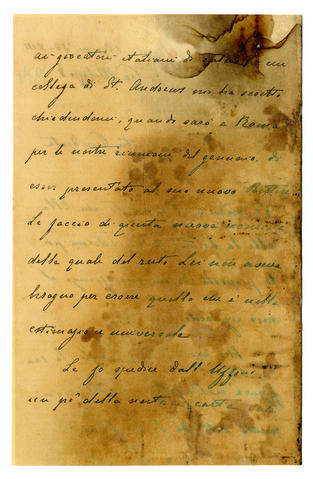 ai giocatori italiani di calcio un
collega di St. Andrews mi ha scritto
chiedendomi, quando sarò a Roma
per le nostre riunioni del gennaio, di
esser presentato al suo nuovo
Le faccio di questa nuova
della quale del resto Lei non aveva
bisogno per essere quello che è nella
estimazione universale
Le fo spedire dall'
un pò della nostra carta